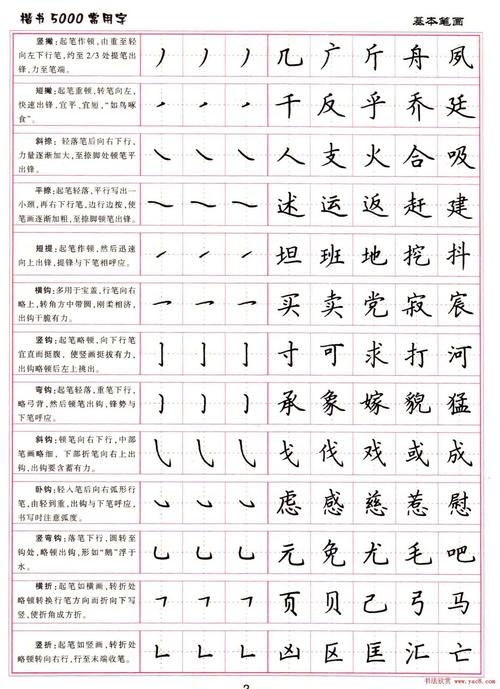 楷书5000常用字
基本笔画
竖撇:起笔作顿,由重至轻
向左下行笔,约至2/3处提笔出
锋,力至笔端。
丿 丿 丿 几 广 斤 舟 夙
短撇:起笔重顿,转笔向左,
快速出锋,宜平、宜短,“如鸟啄
食”。
千 反 乎 乔 廷
斜捺:轻落笔后向右下行,
力量逐渐加大,至捺脚处顿笔平
出锋。
人 支 火 合 吸
平捺:起笔轻落,平行写出一
小颈,再右下行笔,边行边按,使
笔画逐渐加粗,至捺脚顿笔出锋。
述 运 返 赶 建
短提:起笔作顿,然后迅速
向上出锋,提锋与下笔相呼应。
坦 班 地 挖 抖
横钩:多用于宝盖,行笔向右
略上,转角方中带圆,刚柔相济,
出钩干脆有力。
买 卖 党 寂 宸
竖钩:起笔略顿,向下行笔
宜直而挺腹,使竖画挺拔有力,
出钩略顿后左上挑出。
亅 亅 亅 寸 可 求 打 河
弯钩:起笔轻落,重笔下行,
略弓背,然后顿笔出钩,锋势与
下笔呼应。
承 象 嫁 貌 猛
斜钩:顿笔向右下行,中部
笔画略细,下部折笔向右上出
钩,出钩要含蓄有力。
戈 伐 戏 或 成
卧钩:轻入笔后向右弧形行
笔,由轻到重,出钩与下笔呼应,
书写时注意弧度。
虑 感 慈 惹 慰
竖弯钩:落笔下行,圆转至
钩处,略顿出钩,形如“鹅”浮于
水。
乚 乚 乚 元 免 尤 毛 吧
横折:起笔如横画,转折处
略顿转换行笔方向而折向下写
竖,使折角成方折。
页 贝 己 弓 马
竖折:起笔如竖画,转折处
略顿转向右行,行至末端收笔。
凶 区 匡 汇 亡
2
书法欣赏 www.yac8.com